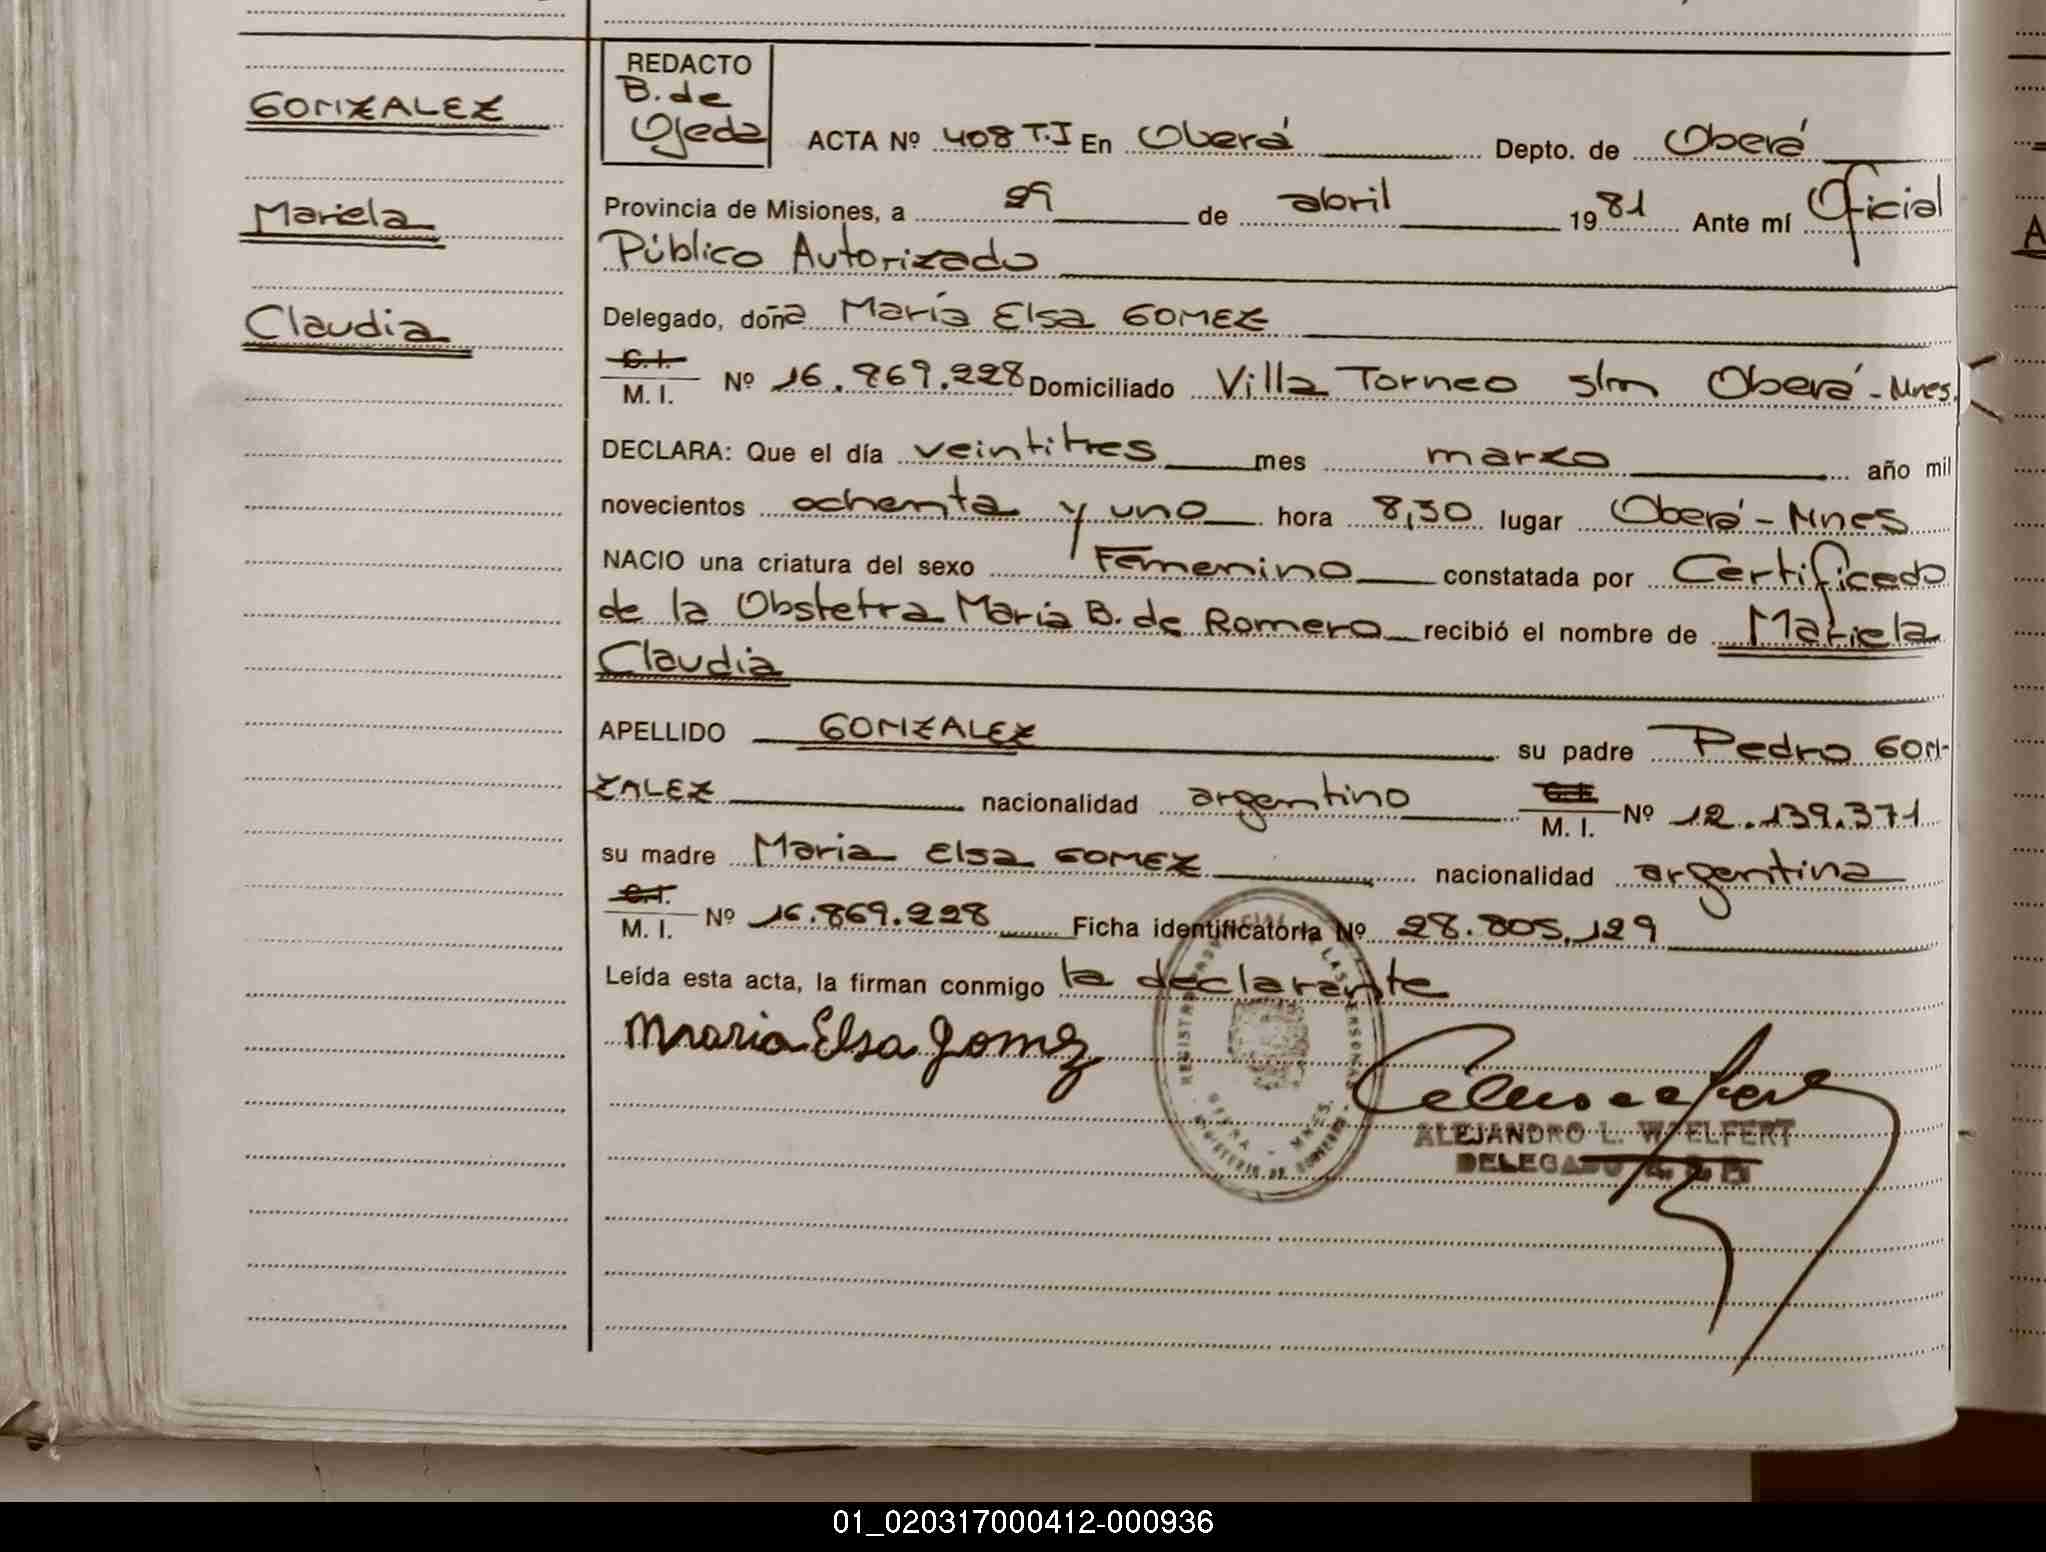 GONZALEZ
Mariela
Claudia
REDACTO
B. de
Ojeda
ACTA Nº 408 T.I En Oberá Depto. de Oberá
Provincia de Misiones, a 29 de abril 1981 Ante mí Oficial
Público Autorizado
Delegado, doña María Elsa GOMEZ
C.I.
M. I. Nº 16.869.228 Domiciliado Villa Torneo s/m Oberá - Mnes.
DECLARA: Que el día veintitres mes marzo año mil
novecientos ochenta y uno hora 8,30 lugar Oberá - Mnes
NACIO una criatura del sexo Femenino constatada por Certificado
de la Obstetra Maria B. de Romero recibió el nombre de Mariela
Claudia
APELLIDO GONZALEZ su padre Pedro GON-
ZALEZ nacionalidad argentino M. I. Nº 12.139.371
su madre Maria Elsa GOMEZ nacionalidad argentina
C.I.
M. I. Nº 16.869.228 Ficha identificatoria Nº 28.805.129
Leída esta acta, la firman conmigo la declarante
Maria Elsa Gomez
ALEJANDRO L. W. ELFERT
DELEGADO
01_020317000412-000936